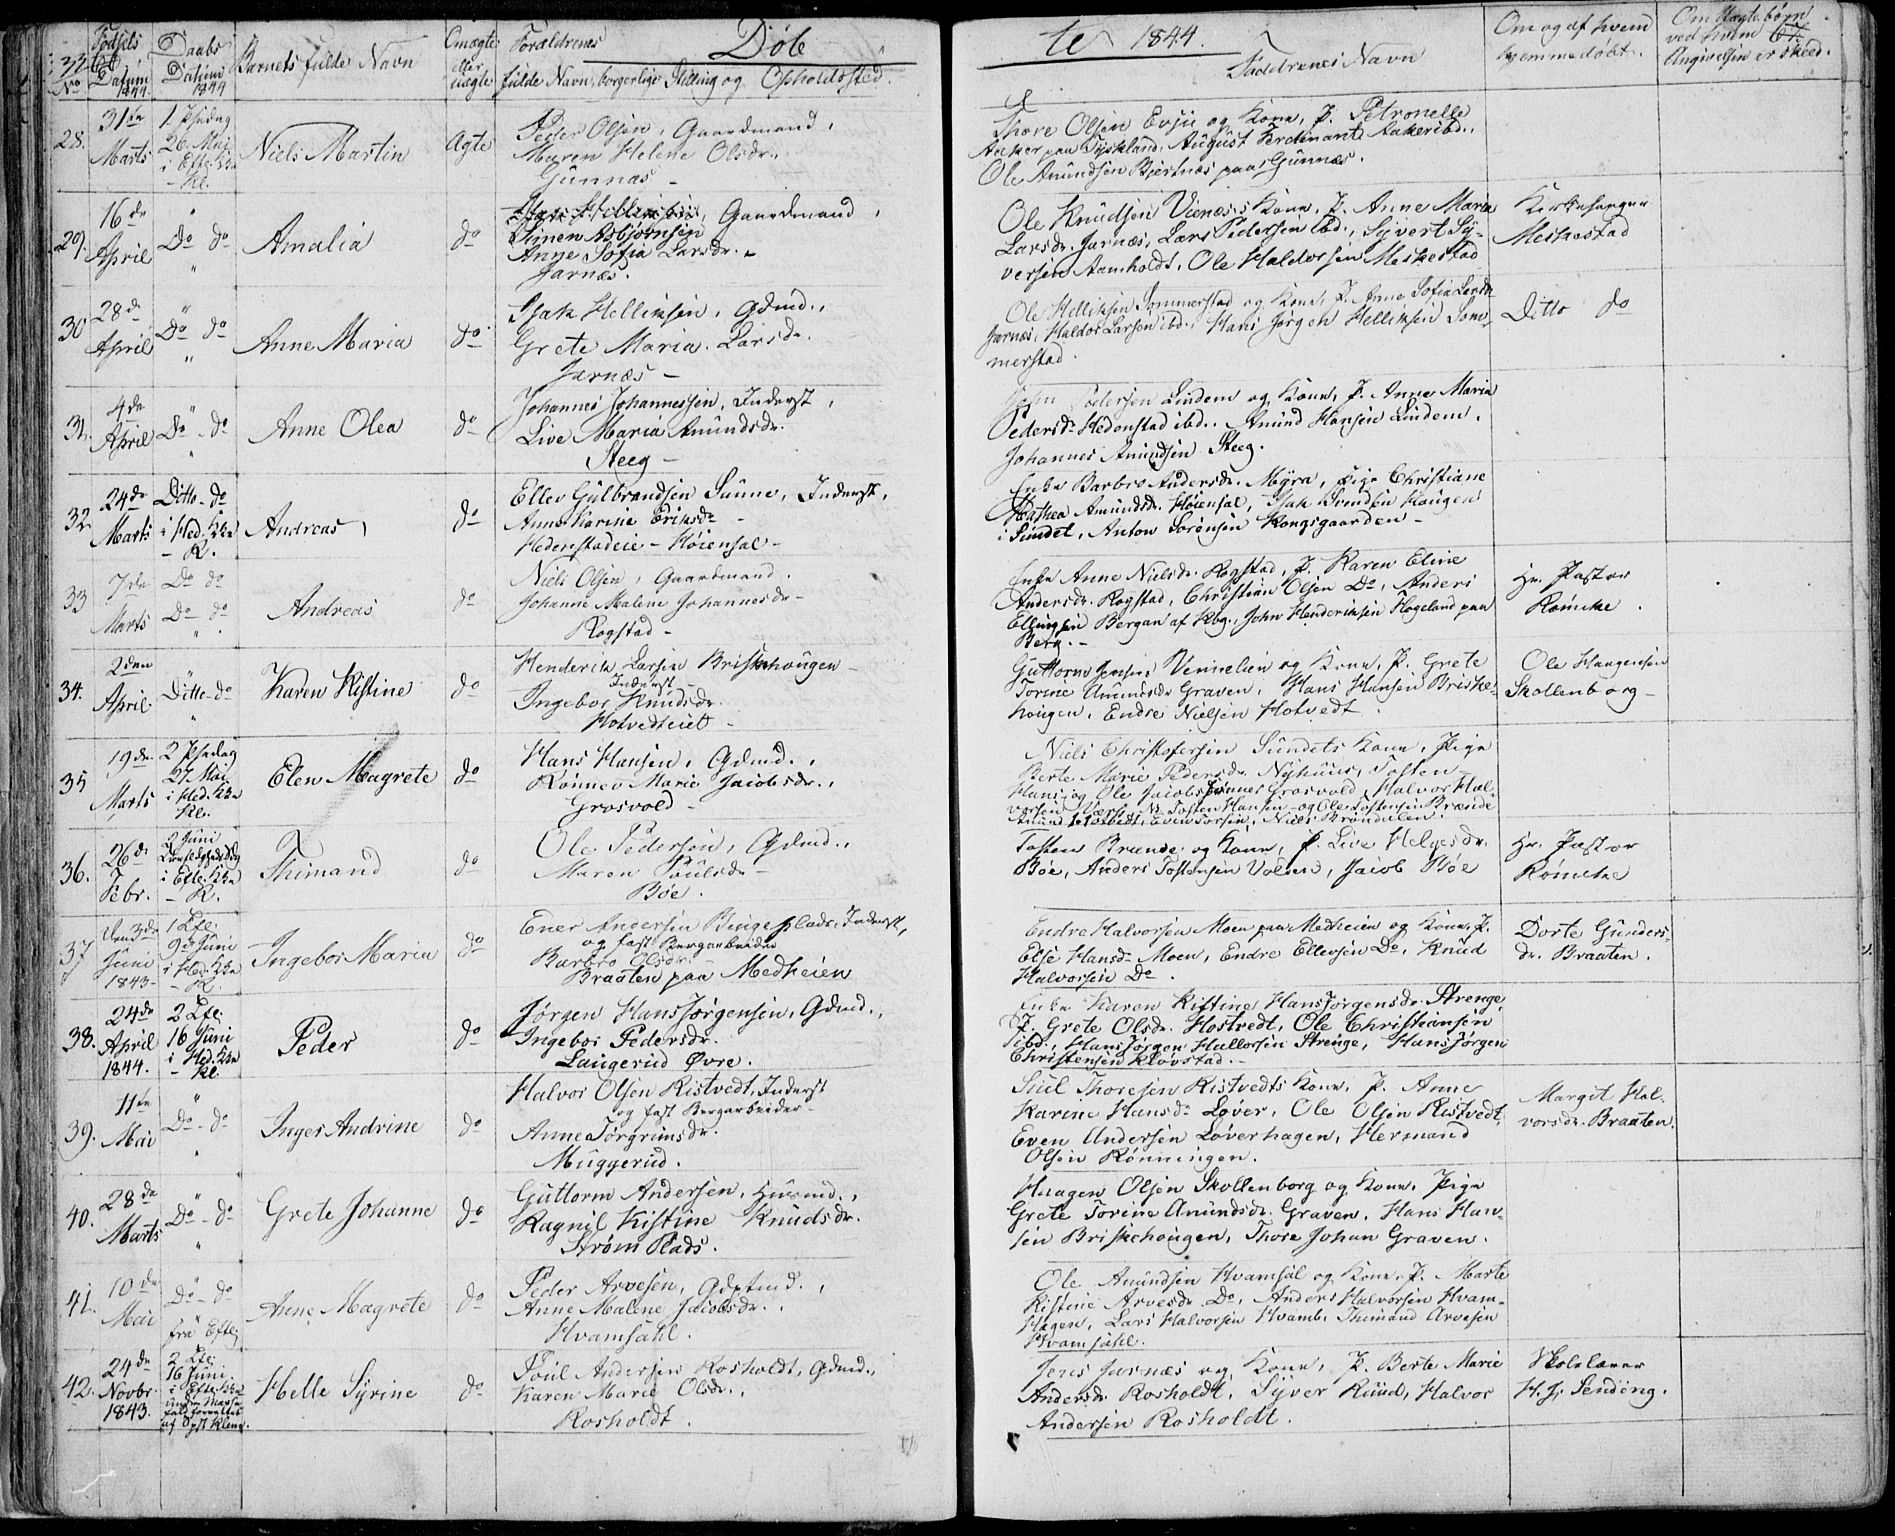 33
Døb
te 1844.
67.
No
Fødsels Datum 1844.
Daabs Datum 1844
Barnets fulde Navn
Om ægte eller uægte
Forældrenes
fulde Navn, borgerlige Stilling og Opholdssted.
Faddrenes Navn
Om og af hvem
hjemmedøbt.
Om uægte børn
ved hvem
Angivelsen er skeed.
28.
31te
Marts
1 Psedag
26 Mai
i Efte. Kke
- Kl.
Niels Martin
Ægte
Peder Olsen, Gaardmand,
Maren Helene Olsdr.
Gunnæs -
Thore Olsen Evju og Kone, P. Petronelle
Aaker paa Tyskland, August Ferdinant Aaker ibd.,
Ole Amundsen Bjertnæs paa Gunnæs.
29.
16de
April
Do do
Amalia
do
Gaardmand,
Simen Asbjørnsen
Anne Sofia Larsdr.
Jarnæs.
Ole Knudsen Vienæs's Kone, P. Anne Maria
Larsdr. Jarnæs, Lars Pedersen ibd., Syvert Sy-
versen Aamholdt, Ole Haldorsen Meskestad
Kirkesanger
Meskestad
30
28de
April
Do do
Anne Maria
do
Isak Helliksen, Gdmd.,
Grete Maria Larsdr.
Jarnæs -
Ole Helliksen Sommerstad og Kone, P. Anne Sofia Larsdr.
Jarnæs, Haldor Larsen ibd., Hans Jørgen Helliksen Som-
merstad.
Ditto do
31.
4de
April
Do - do
Anne Olea
do
Johannes Johannessen, Inderst,
Live Maria Amundsdr.
Steeg -
John Pedersen Lindem og Kone, P. Anne Maria
Pedersdr. Hedenstad ibd., Amund Hansen Lindem,
Johannes Amundsen Steeg.
32
24de
Marts
Ditto - do
i Hed. Kke
- K.
Andreas
do
Ellev Gulbrandsen Sunne, Inderst,
Anne Karine Eriksdr -
Hedenstadeie - Høiensal -
Enke Barbro Andersdr. Myra, Pige Christiane
Mathea Amundsdr. Høiensal, Isak Svendsen Haugen
i Sundet, Anton Sørensen Kongsgaarden -
33
7de
Marts
Do do
Do do
Andreas
do
Niels Olsen, Gaardmand.
Johanne Malene Johannesdr -
Rogstad -
Enke Anne Nielsdr. Rogstad, P. Karen Eline
Andersdr. Rogstad, Christian Olsen Do, Anders
Ellingsen Bergan af Kbg., John Henderiksen Fogeland paa
Berg. -
Hr. Pastor
Rømcke.
34.
2den
April
Ditto do
Karen Kistine
do
Henderik Larsen Briskehougen -
Inderst -
Ingebor Knudsdr.
Hotvedteiet -
Guttorm Jensen Vennelien og Kone, P. Grete
Torine Amundsdr Graven, Hans Hansen Briske-
hougen, Endre Nielsen Hotvedt.
Ole Haugensen
Skollenborg -
35
19de
Marts
2 Psedag
27 Mai
i Hed. Kke
Kl.
Elen Magrete
do
Hans Hansen, Gdmd.,
Rønnev Marie Jacobsdr.,
Grosvold -
Niels Christofersen Sundets Kone, Pige
Berte Marie Pedersdr. Nyhuus, Tosten
Hans, og Ole Jacobs Sønner Grosvold, Halvor Hal-
36.
26de
Febr.
2 Juni
i Efte. Kke
- K.
Thimand
do
Ole Pedersen, Gdmd.,
Maren Poulsdr -
Bøe.
Tosten Brænde og Kone, P. Live Helgesdr.
Bøe, Anders Tostensen Volden, Jacob Bøe
Hr. Pastor
Rømcke
37
Den 3de
Juni
1843 -
1 Efte.
9de Juni
i Hed. Kke
- K.
Ingebor Maria
do
Ener Andersen Bingeplads, Inderst,
og fast Bergarbeider
Barbro Olsdr.
Braaten paa Medheien
Endre Halvorsen Moen paa Medheien og Kone, P.
Else Hansdr. Moen, Endre Ellevsen Do, Knud
Halvorsen Do.
Dorte Gunders-
dr. Braaten.
38.
24de
April
1844.
2 Efte.
16 Juni
i Hed. Kke
- Kl.
Peder
do
Jørgen Hans Jørgensen, Gdmd.,
Ingebor Pedersdr.
Laugerud Øvre.
Enke Karen Kistine Hans Jørgensdr. Strenge,
P. Grete Olsdr. Hostvedt, Ole Christiansen
ibd., Hans Jørgen Hallorsen Strenge, Hans Jørgen
Christensen Kløvstad. -
39.
11te
Mai
Do - do
Inger Andrine
do
Halvor Olsen Ristvedt, Inderst
og fast Bergarbeider -
Anne Torgrimsdr.
Muggerud.
Juul Thoresen Ristvedts Kone, P. Anne
Karine Hansdr. Løver, Ole Olsen Ristvedt,
Even Andersen Løverhagen, Hermand
Olsen Rønningen.
Margit Hal-
vorsdr. Braaten.
40.
28de
Marts
Do - do
Grete Johanne
do
Guttorm Andersen, Husmd.,
Ragnil Kistine Knudsdr.
Strøm Plads.
Haagen Olsen Skollenborg og Kone, Pige
Grete Torine Amundsdr. Graven, Hans Han-
sen Briskehougen, Thore Johan Graven.
41.
10de
Mai
Do - do
fra Efte.
Anne Magrete
do
Peder Arvesen, Gdptmd.,
Anne Malene Jacobsdr.,
Hvamsahl.
Ole Amundsen Hvamsal og Kone, P. Marte
Kistine Arvesdr. Do, Anders Halvorsen Hvam-
Hagen, Lars Halvorsen Hvamb, Thimand Arvesen
Hvamsahl.
42.
24de
Novbr.
1843.
2 Efte.
16 Juni
i Efte. Kke
Helle Syrine
do
Poul Andersen Rosholdt, Gdmd.,
Karen Marie Olsdr.,
Rosholdt.
Jens Jarnæs og Kone, P. Berte Marie
Andersdr Rosholdt, Syver Ruud, Halvor
Andersen Rosholdt.
Skolelærer
H. J. Sendeng.